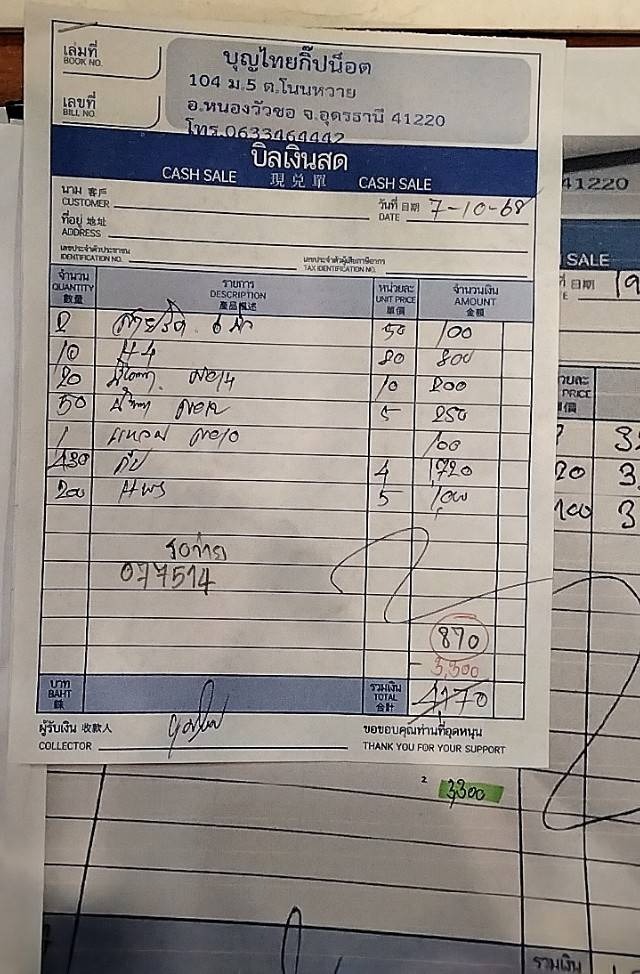 เล่มที่
BOOK NO.
เลขที่
BILL NO.
บุญไทยกิ๊ปน็อต
104 ม.5 ต.โนนหวาย
อ.หนองวัวซอ จ.อุดรธานี 41220
โทร.0633464442
บิลเงินสด
CASH SALE 現兌單 CASH SALE
นาม 客戶
CUSTOMER
วันที่ 日期
DATE 7-10-68
ที่อยู่ 地址
ADDRESS
เลขประจำตัวประชาชน
IDENTIFICATION NO.
เลขประจำตัวผู้เสียภาษีอากร
TAX IDENTIFICATION NO.
จำนวน QUANTITY 數量
รายการ DESCRIPTION 產品概述
หน่วยละ UNIT PRICE 單價
จำนวนเงิน AMOUNT 金額
2 50 100
10 H4 80 800
20 เบอ14 10 200
50 เบอ12 5 250
1 แหวน เบอ10 100
430 กิ๊ป 4 1720
200 5 1000
077514
870
- 3,300
4170
บาท
BAHT
銖
รวมเงิน
TOTAL
合計
ผู้รับเงิน 收款人
COLLECTOR
ขอขอบคุณท่านที่อุดหนุน
THANK YOU FOR YOUR SUPPORT
41220
SALE
日期
19
PRICE
20 3
100 3
2 3,300
รวมเงิน